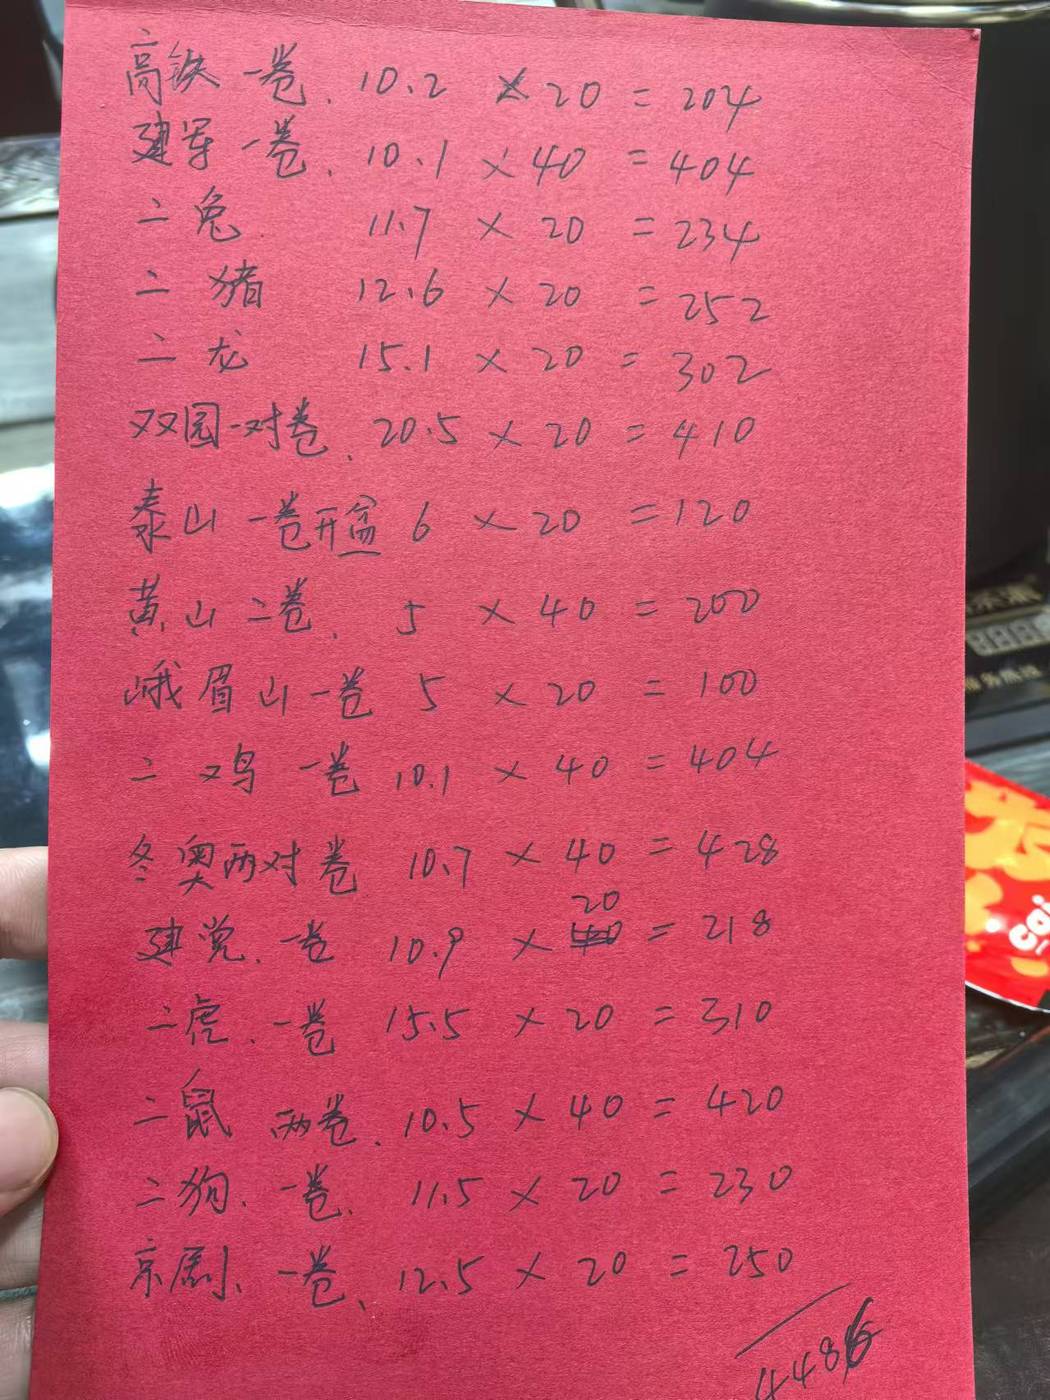 高铁一卷、10.2 × 20 = 204
建军一卷、10.1 × 40 = 404
二兔 11.7 × 20 = 234
二猪 12.6 × 20 = 252
二龙 15.1 × 20 = 302
双园一对卷、20.5 × 20 = 410
泰山一卷开盒 6 × 20 = 120
黄山二卷、5 × 40 = 200
峨眉山一卷 5 × 20 = 100
二鸡一卷 10.1 × 40 = 404
冬奥两对卷 10.7 × 40 = 428
建党、一卷 10.9 × 20 = 218
二虎、一卷 15.5 × 20 = 310
二鼠 两卷、10.5 × 40 = 420
二狗、一卷、11.5 × 20 = 230
京剧、一卷、12.5 × 20 = 250
4486